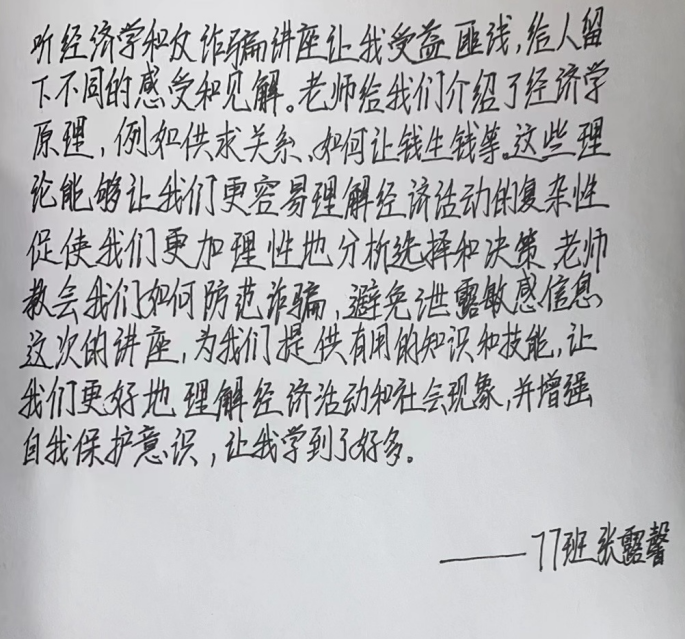 听经济学和反诈骗讲座让我受益匪浅,给人留
下不同的感受和见解。老师给我们介绍了经济学
原理,例如供求关系、如何让钱生钱等。这些理
论能够让我们更容易理解经济活动的复杂性
促使我们更加理性地分析选择和决策 老师
教会我们如何防范诈骗,避免泄露敏感信息
这次的讲座,为我们提供有用的知识和技能,让
我们更好地理解经济活动和社会现象,并增强
自我保护意识,让我学到了好多。
——77班 张露馨